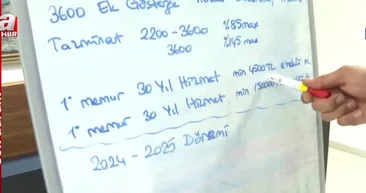 a
HBR
3600 Ek Gösterge
Tazminat 2200 - 3600 %85 max
3600 %145 max
1° memur 30 Yıl Hizmet min 4500TL
1° memur 30 Yıl Hizmet min
2024 - 2025 Dönemi